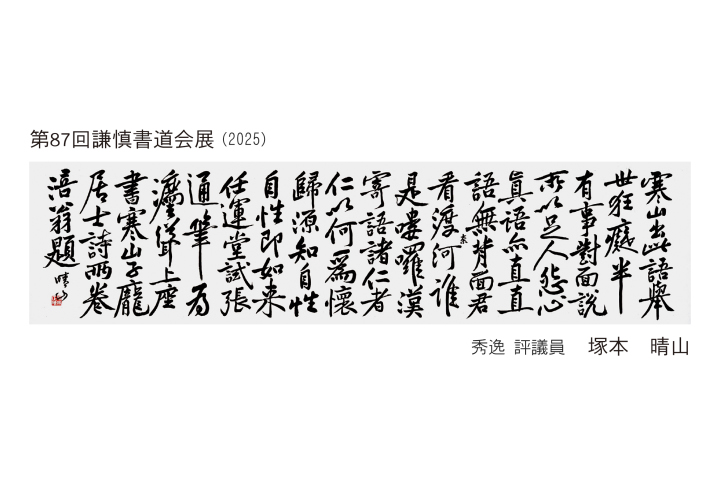 第87回謙慎書道会展 (2025)
寒山出此語舉
世狂癡半
有事對面説
所以足人怨心
真語亦直直
語無背面君
看渡河誰
是嘍囉漢
寄語諸仁者
仁以何爲懷
歸源知自性
自性即如来
任運堂試張
通筆為
灋聳上座
書寒山子龐
居士詩兩卷
涪翁題 晴山
秀逸 評議員 塚本 晴山